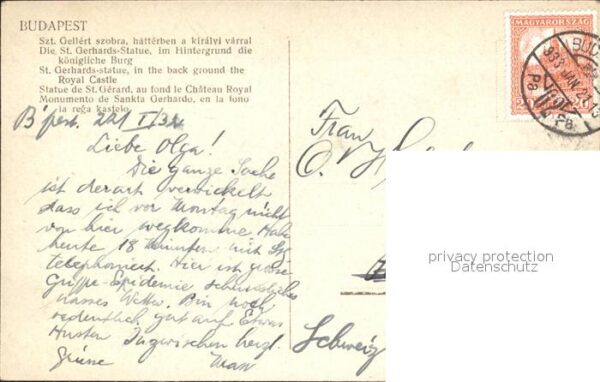 BUDAPEST
Szt. Gellért szobra, háttérben a királyi várral
Die St. Gerhards-Statue, im Hintergrund die
königliche Burg
St. Gerhards-statue, in the back ground the
Royal Castle
Statue de St. Gérard, au fond le Château Royal
Monumento de Sankta Gerhardo, en la fono
la reĝa kastelo
B'pest.
Liebe Olga!
Die ganze Sache
ist derart verwickelt
dass ich vor Montag nicht
von hier wegkomme Habe
heute 18 Minuten mit
telephoniert. Hier ist grosse
Grippe-Epidemie scheussliches
nasses Wetter. Bin noch
ordentlich gut auf Etwas
Husten Inzwischen herzl.
Grüsse
Frau
Schweiz
MAGYARORSZÁG
BUD
933 JAN 2
privacy protection
Datenschutz